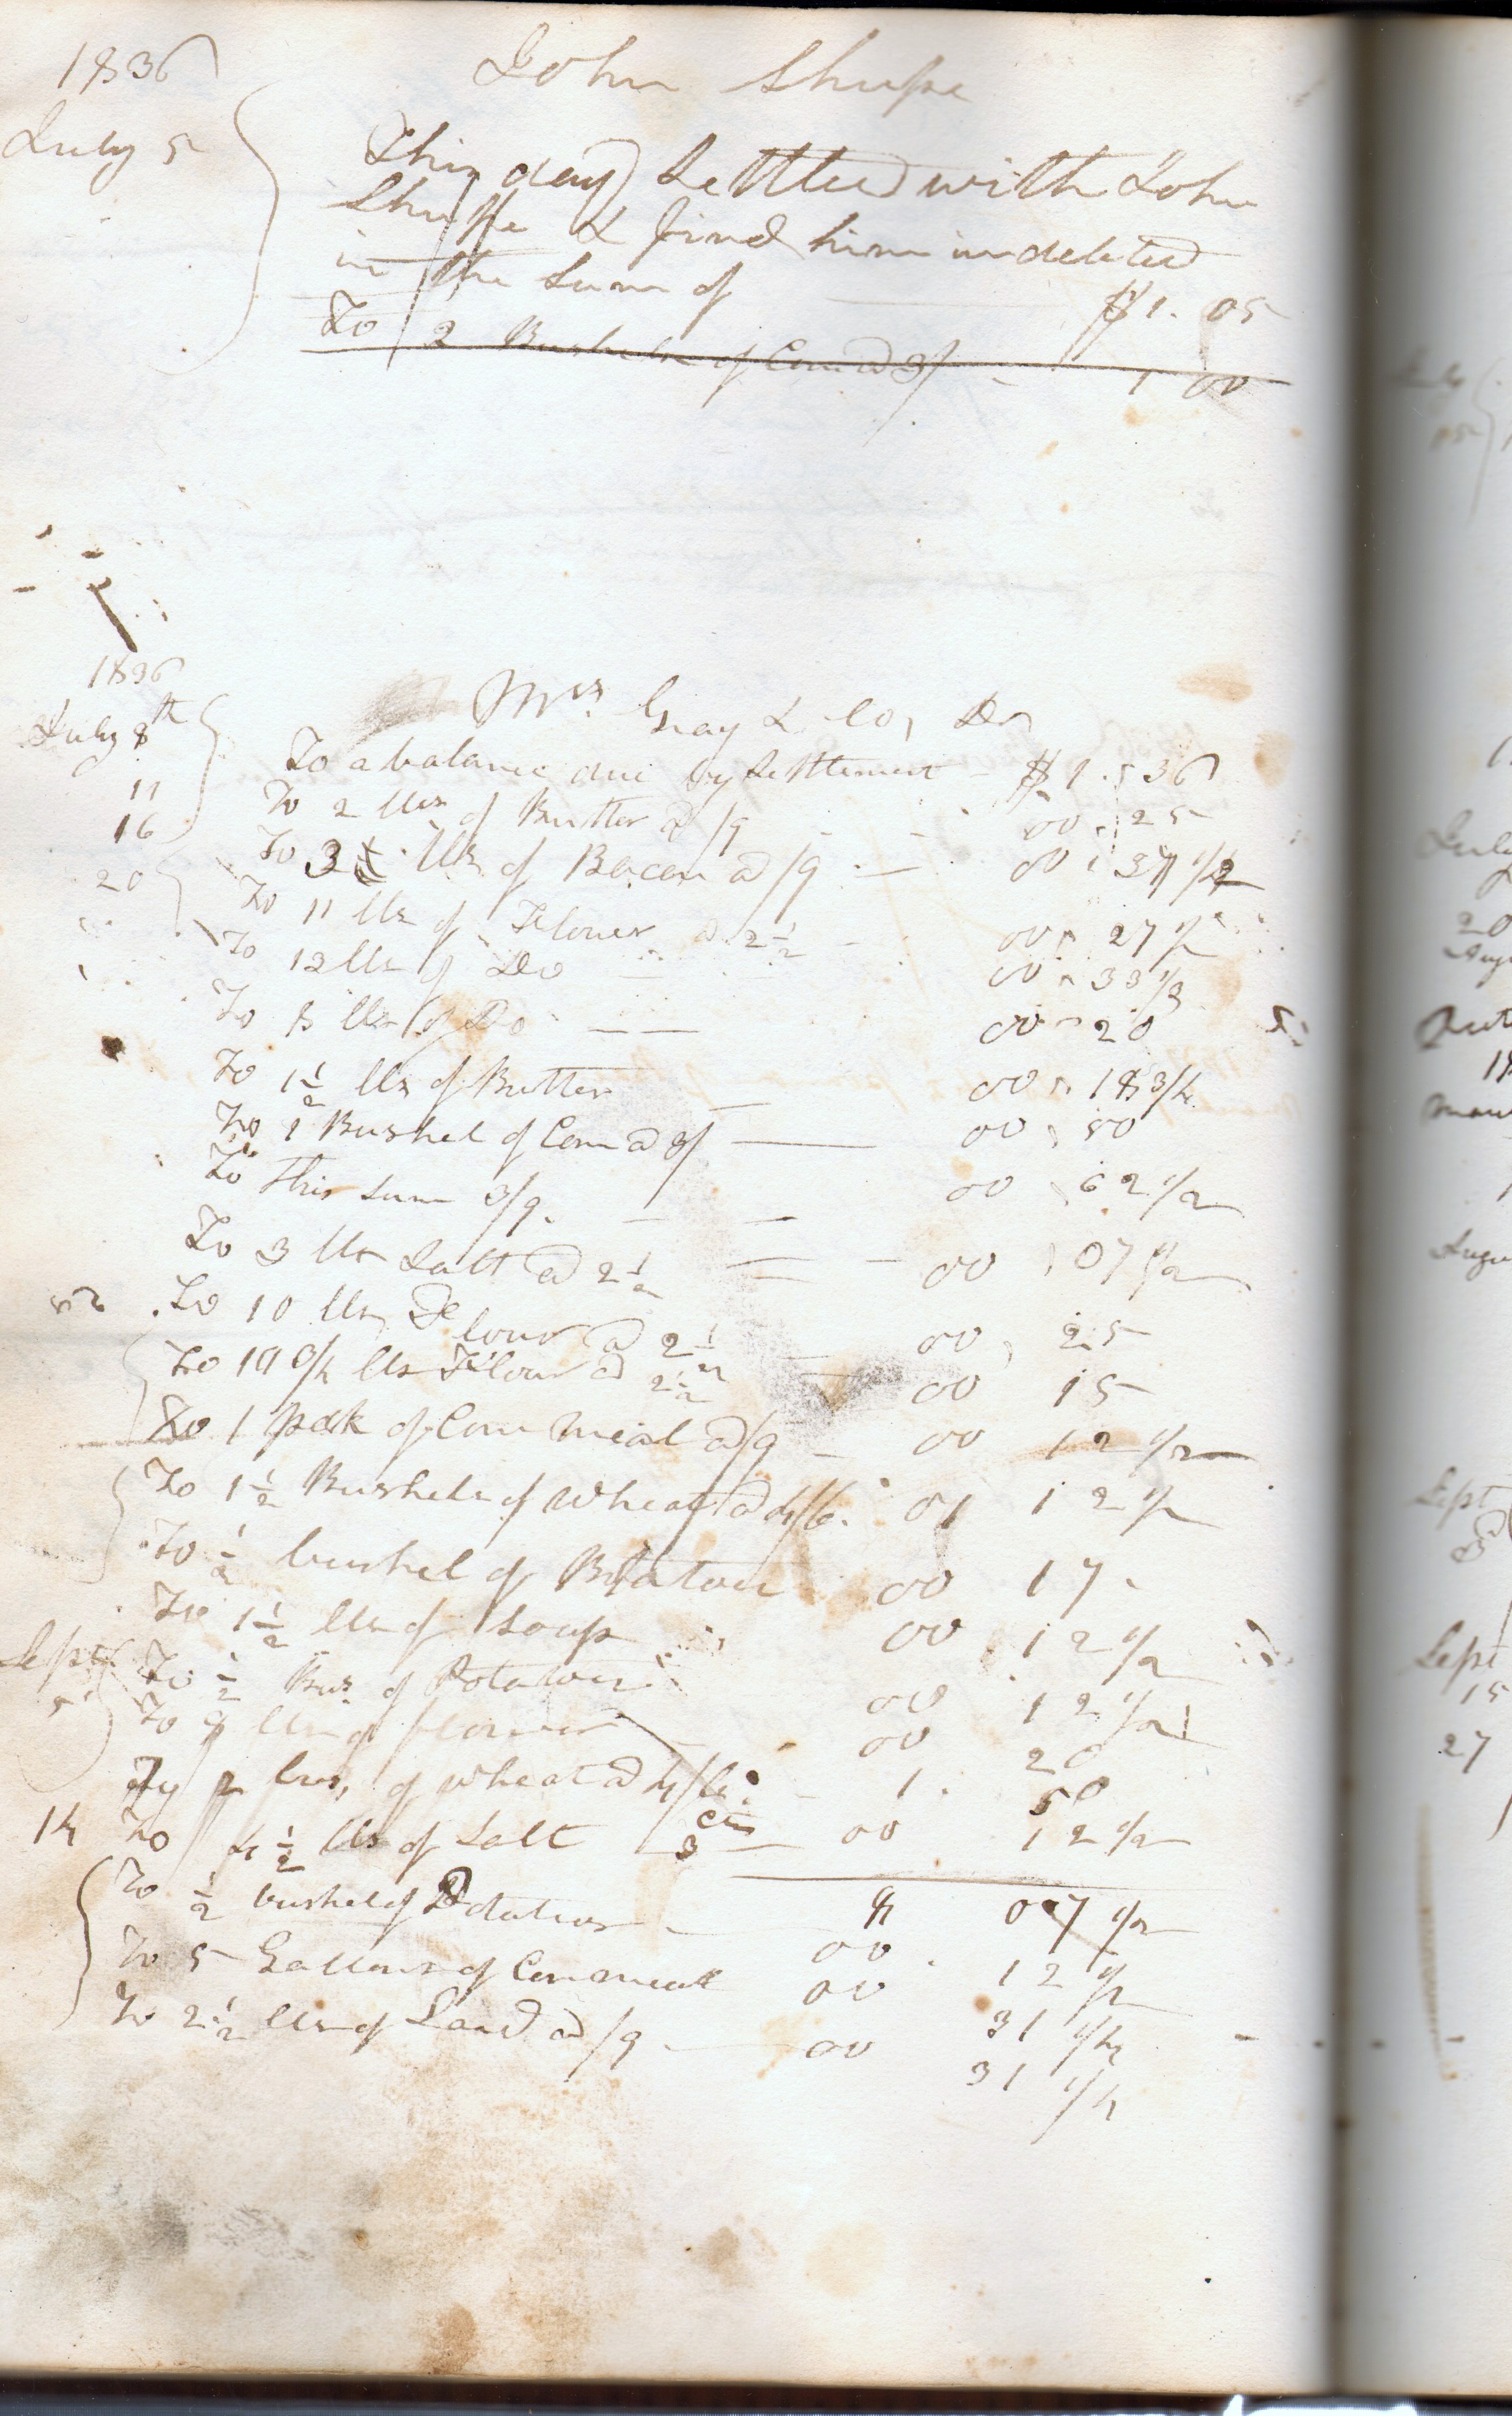 1836 John Shupe
July 5
This day Settled with John
Shupe & find him indebted
in the Sum of $1. 05
To 2 Bushels of Corn @ 3/ - 1 00
1836
Mrs. Gray & Co, Dr
July 8th To a balance due by Settlement - $1. 36
11 To 2 lbs of Butter @ /9 - 00 25
16 To 3 lbs of Bacon @ /9 - 00 37 1/2
20 To 11 lbs of Flower @ 2 1/2 - 00 27 1/2
To 12 lbs of Do - 00 33 1/3
To 8 lbs of Do - 00 20
To 1 1/2 lbs of Butter - 00 18 3/4
To 1 Bushel of Corn @ 3/ - 00 50
To this sum 3/9. - 00 62 1/2
To 3 lbs Salt @ 2 1/2 - 00 07 1/2
To 10 lbs Flour @ 2 1/2 - 00 25
To lbs Flour @ 2 1/2 00 15
To 1 peck of Corn Meal @ /9 - 00 12 1/2
To 1 1/2 Bushels of Wheat @ 4/6. 01 12 1/2
To 1/2 bushel of Potatoes 00 17
To 1 1/2 lbs of Soap 00 12 1/2
Sept To 1/2 Bus. of Potatoes 00 12 1/2
5 To 9 lbs of flower - 00 20
By 2 bus, of wheat @ 4/6. - 1. 50
14 To 4 1/2 lbs of Salt 3 cts 00 12 1/2
8 07 1/2
To 1/2 bushel of Potatoes - 00 12 1/2
To 5 Gallons of Cornmeal 00 31 1/4
To 2 1/2 lbs of Lard @ /9 - 00 31 1/4